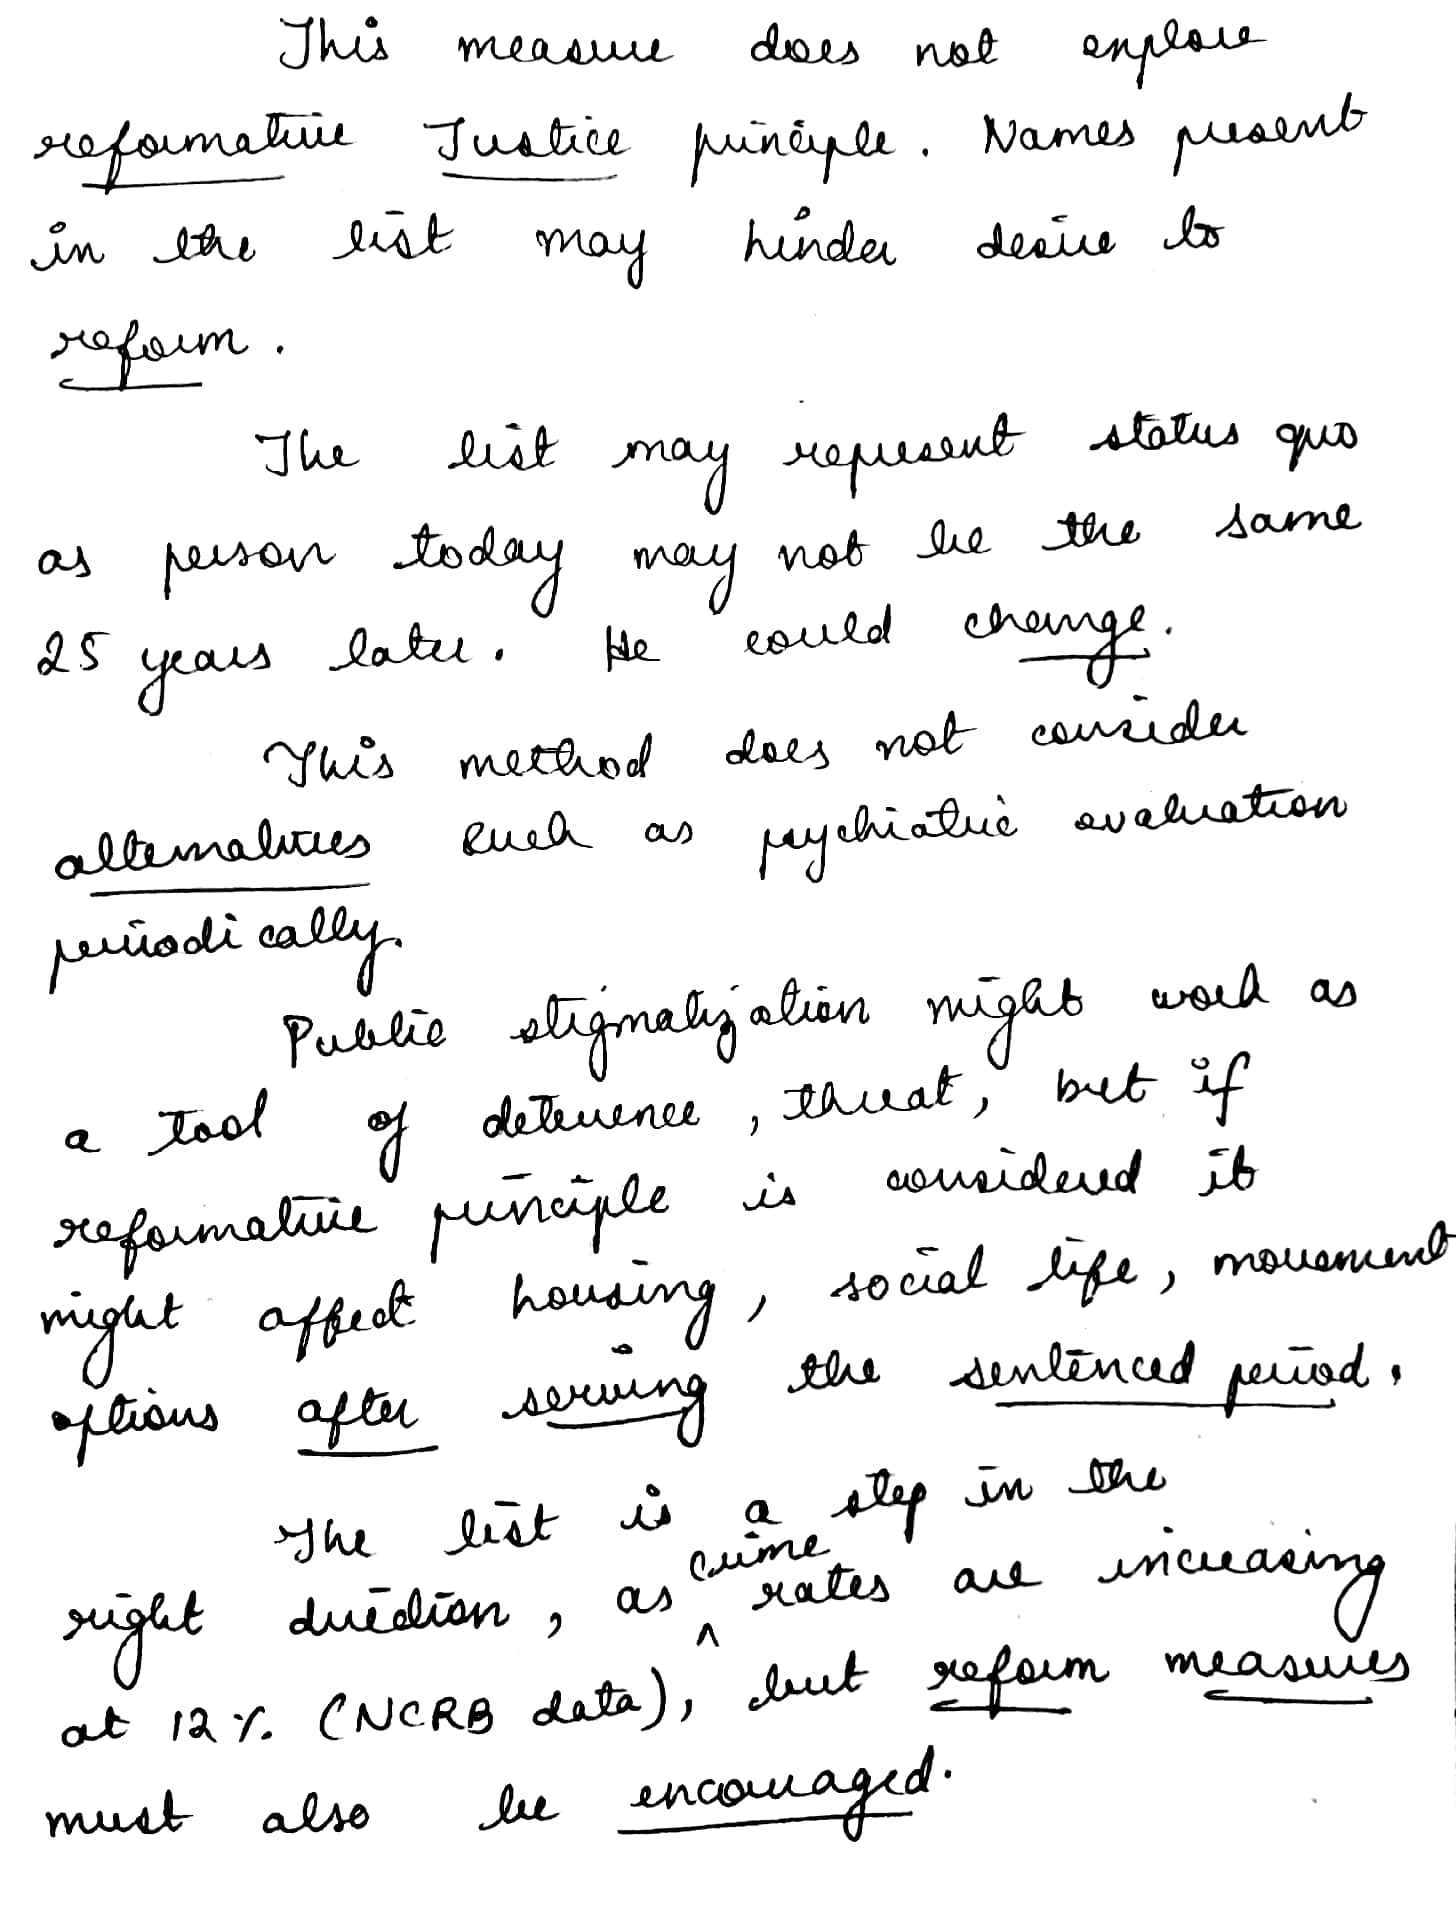 This measure does not explore
reformative Justice principle. Names present
in the list may hinder desire to
reform.
The list may represent status quo
as person today may not be the same
25 years later. He could change.
This method does not consider
alternatives such as psychiatric evaluation
periodically.
Public stigmatization might work as
a tool of deterrence, threat, but if
reformative principle is considered it
might affect housing, social life, movement
options after serving the sentenced period.
The list is a step in the
right direction, as crime rates are increasing
at 12% (NCRB data), but reform measures
must also be encouraged.